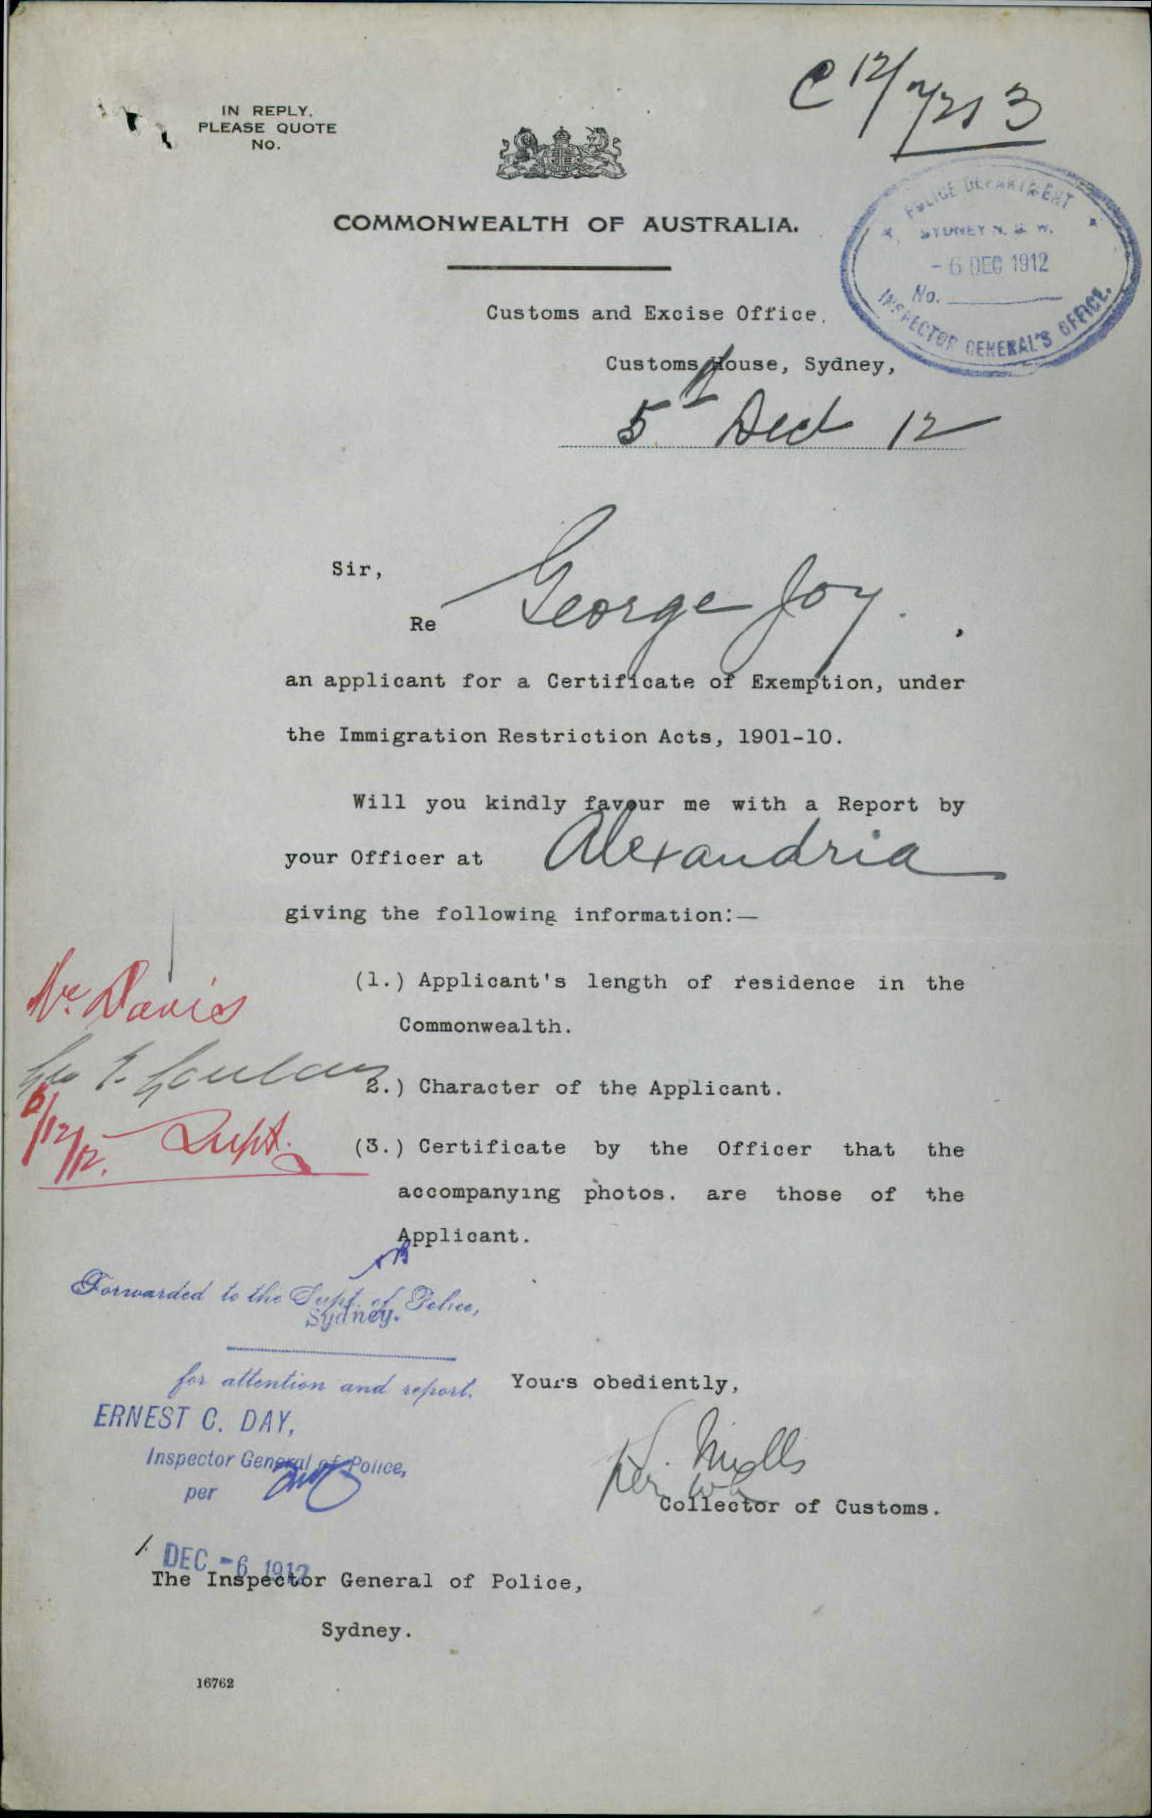 C 12/
3
IN REPLY,
PLEASE QUOTE
No.
COMMONWEALTH OF AUSTRALIA.
POLICE DEPARTMENT
SYDNEY N. S. W.
- 6 DEC 1912
No.
INSPECTOR GENERAL'S OFFICE.
Customs and Excise Office.
Customs House, Sydney,
5th Dec 12
Sir,
Re George Joy.,
an applicant for a Certificate of Exemption, under
the Immigration Restriction Acts, 1901-10.
Will you kindly favour me with a Report by
your Officer at Alexandria
giving the following information:—
(1.) Applicant's length of residence in the
Commonwealth.
2.) Character of the Applicant.
(3.) Certificate by the Officer that the
accompanying photos. are those of the
Applicant.
Davis
6/12/12. Supt.
Forwarded to the Supt. of Police,
Sydney.
for attention and report.
ERNEST C. DAY,
Inspector General of Police,
per
Yours obediently,
Mills
per
Collector of Customs.
DEC -6 1912
The Inspector General of Police,
Sydney.
16762